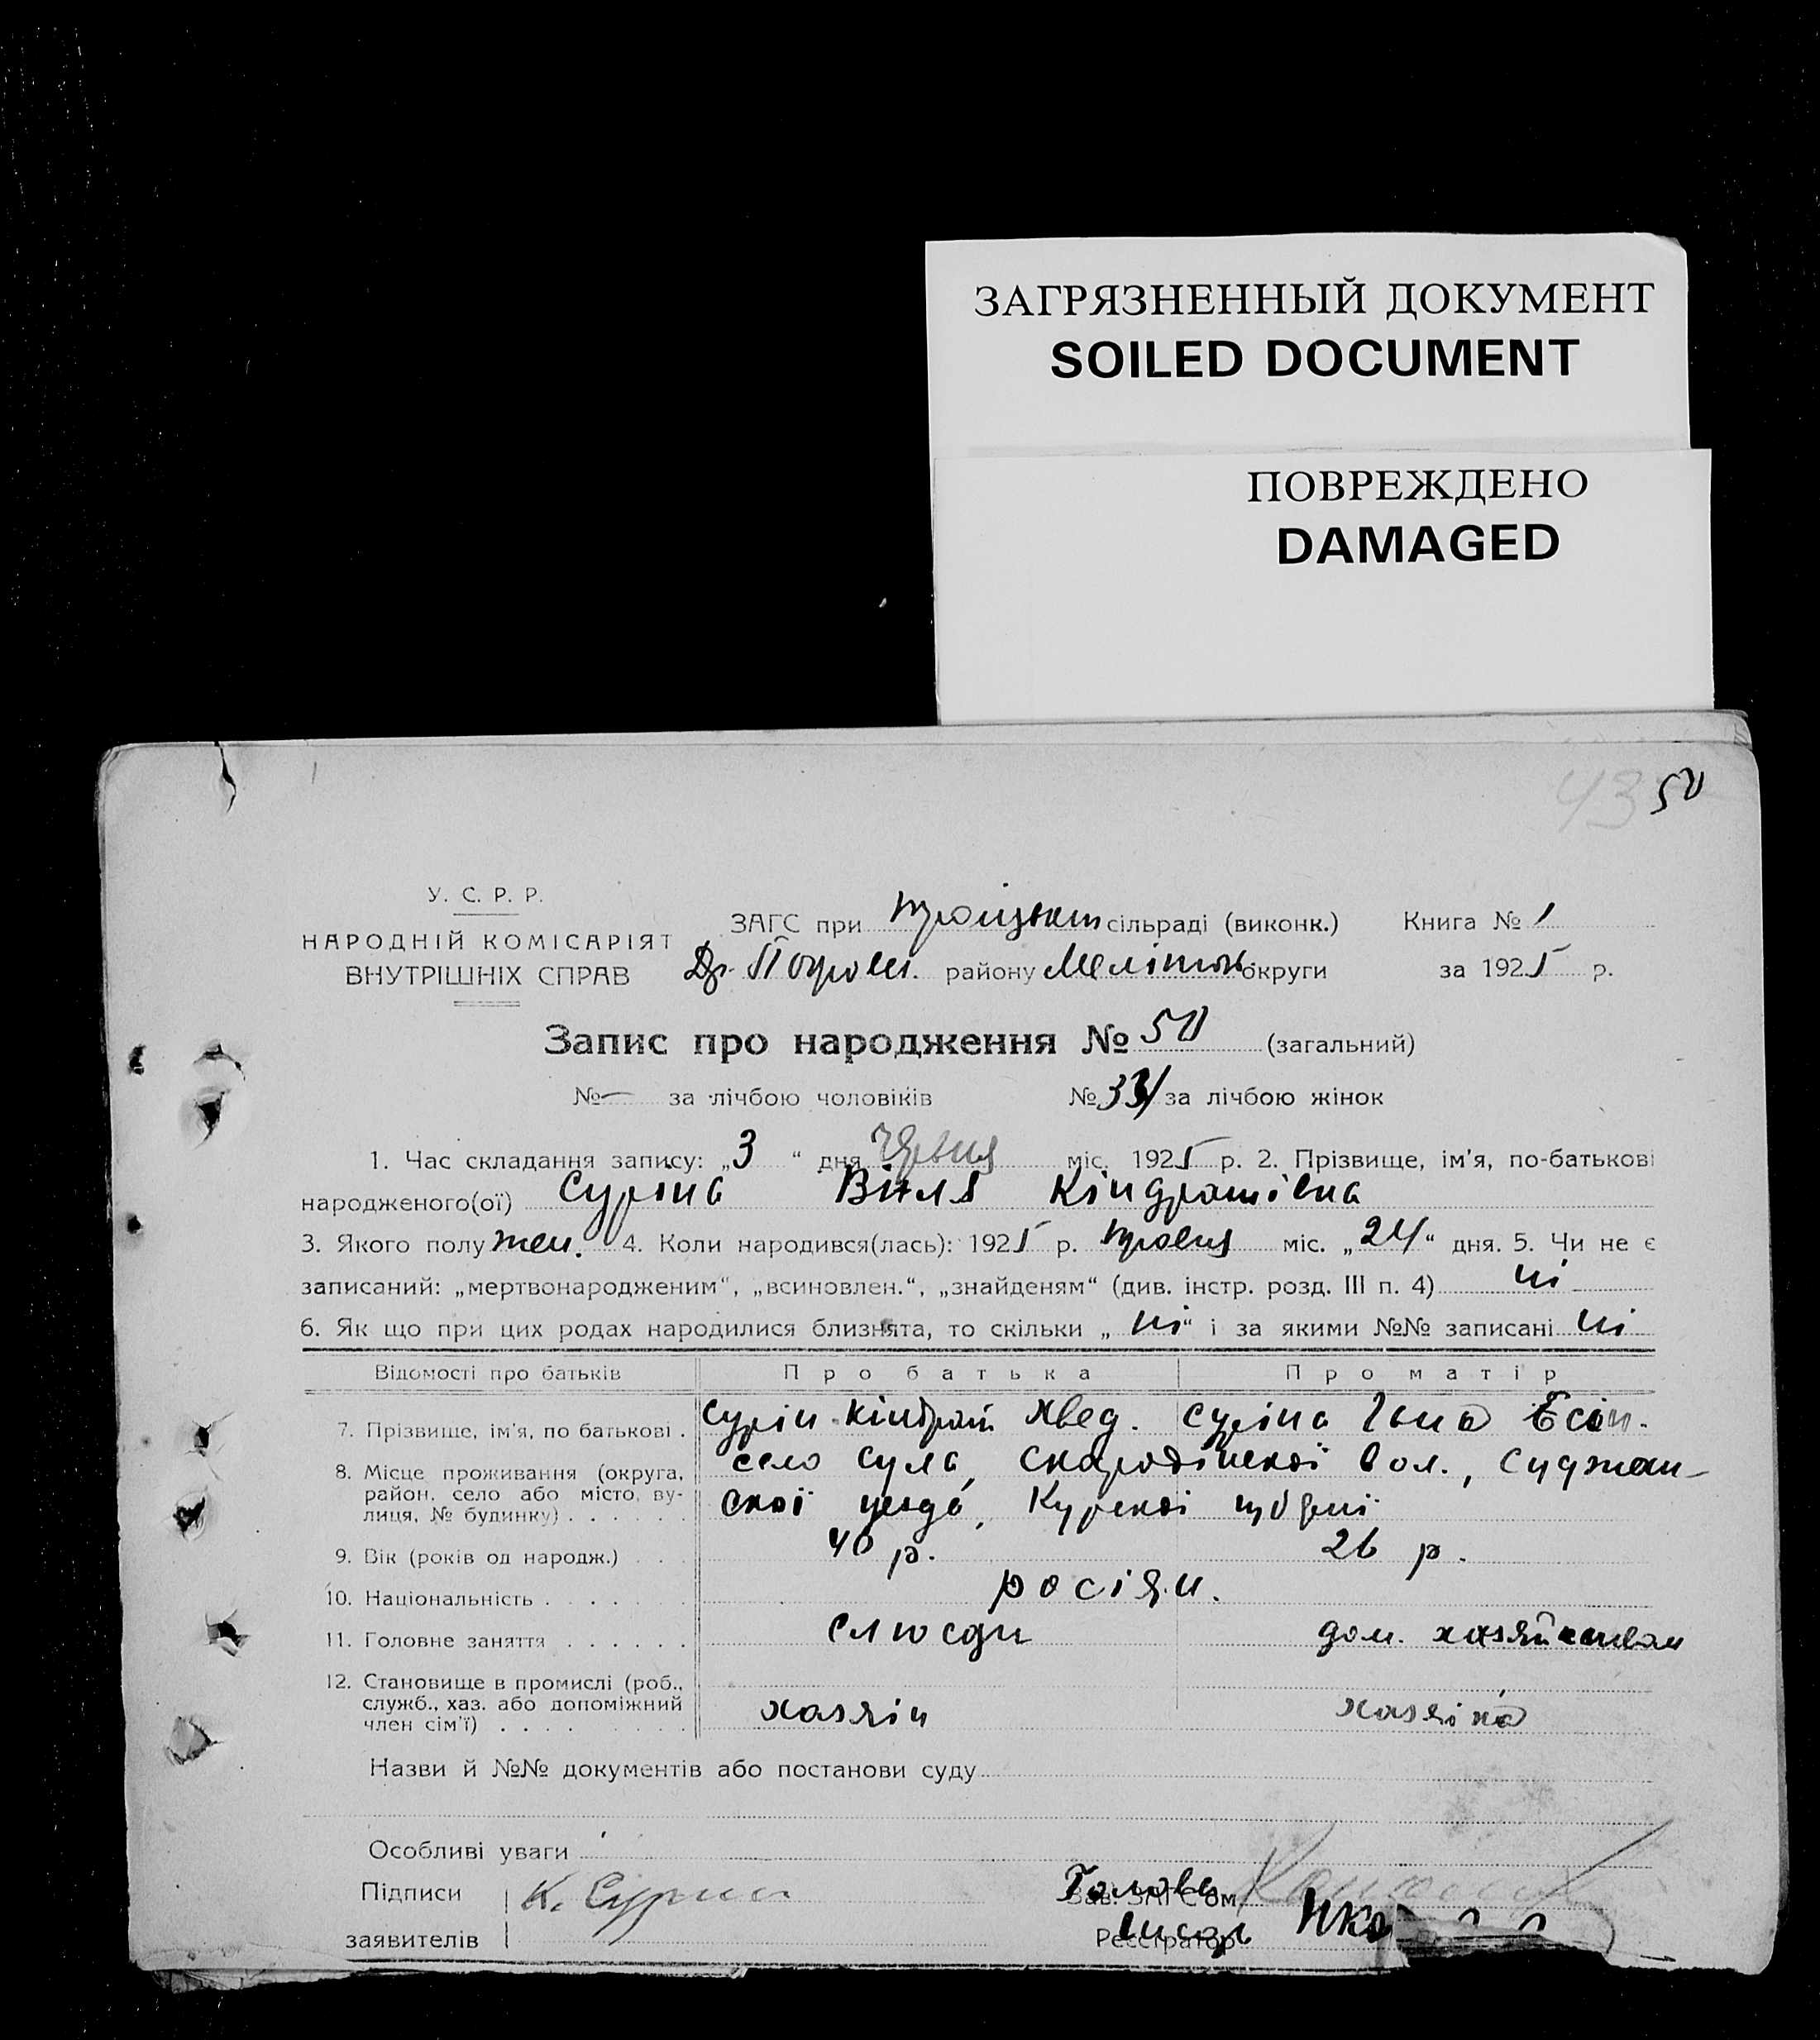 ЗАГРЯЗНЕННЫЙ ДОКУМЕНТ
SOILED DOCUMENT
ПОВРЕЖДЕНО
DAMAGED
43 50
У. С. Р. Р.
НАРОДНІЙ КОМІСАРІЯТ
ВНУТРІШНІХ СПРАВ
ЗАГС при Троїцьком сільраді (виконк.) Книга № 1
району Меліток. округи за 1925 р.
Запис про народження № 50 (загальний)
№ — за лічбою чоловіків № 33 за лічбою жінок
1. Час складання запису: „3“ дня червня міс. 1925 р. 2. Прізвище, ім'я, по-батькові
народженого(ої) Суріна Віля Кіндратівна
3. Якого полу жен. 4. Коли народився(лась): 1925 р. травня міс. „24“ дня. 5. Чи не є
записаний: „мертвонародженим“, „всиновлен.“, „знайденям“ (див. інстр. розд. III п. 4) ні
6. Як що при цих родах народилися близнята, то скільки „ні“ і за якими №№ записані ні
Відомості про батьків Про батька Про матір
7. Прізвище, ім'я, по батькові . Сурін Кіндрат Хвед. Суріна Ганна
8. Місце проживання (округа, село Сула, Скародінской вол., Суджан-
район, село або місто, ву- ской уезда, Курскоі губерні
лиця, № будинку) . . . . . .
9. Вік (років од народж.) . . . 40 р. 26 р.
10. Національність . . . . . . . росіян.
11. Головне заняття . . . . . . слюсарь дом. хазяйством
12. Становище в промислі (роб.,
служб., хаз. або допоміжний хазяін хазяіна
член сім'ї) . . . . . . . . .
Назви й №№ документів або постанови суду
Особливі уваги
Підписи К. Сурин Голова Зав. ЗАГС'ом
заявителів Реєстратор